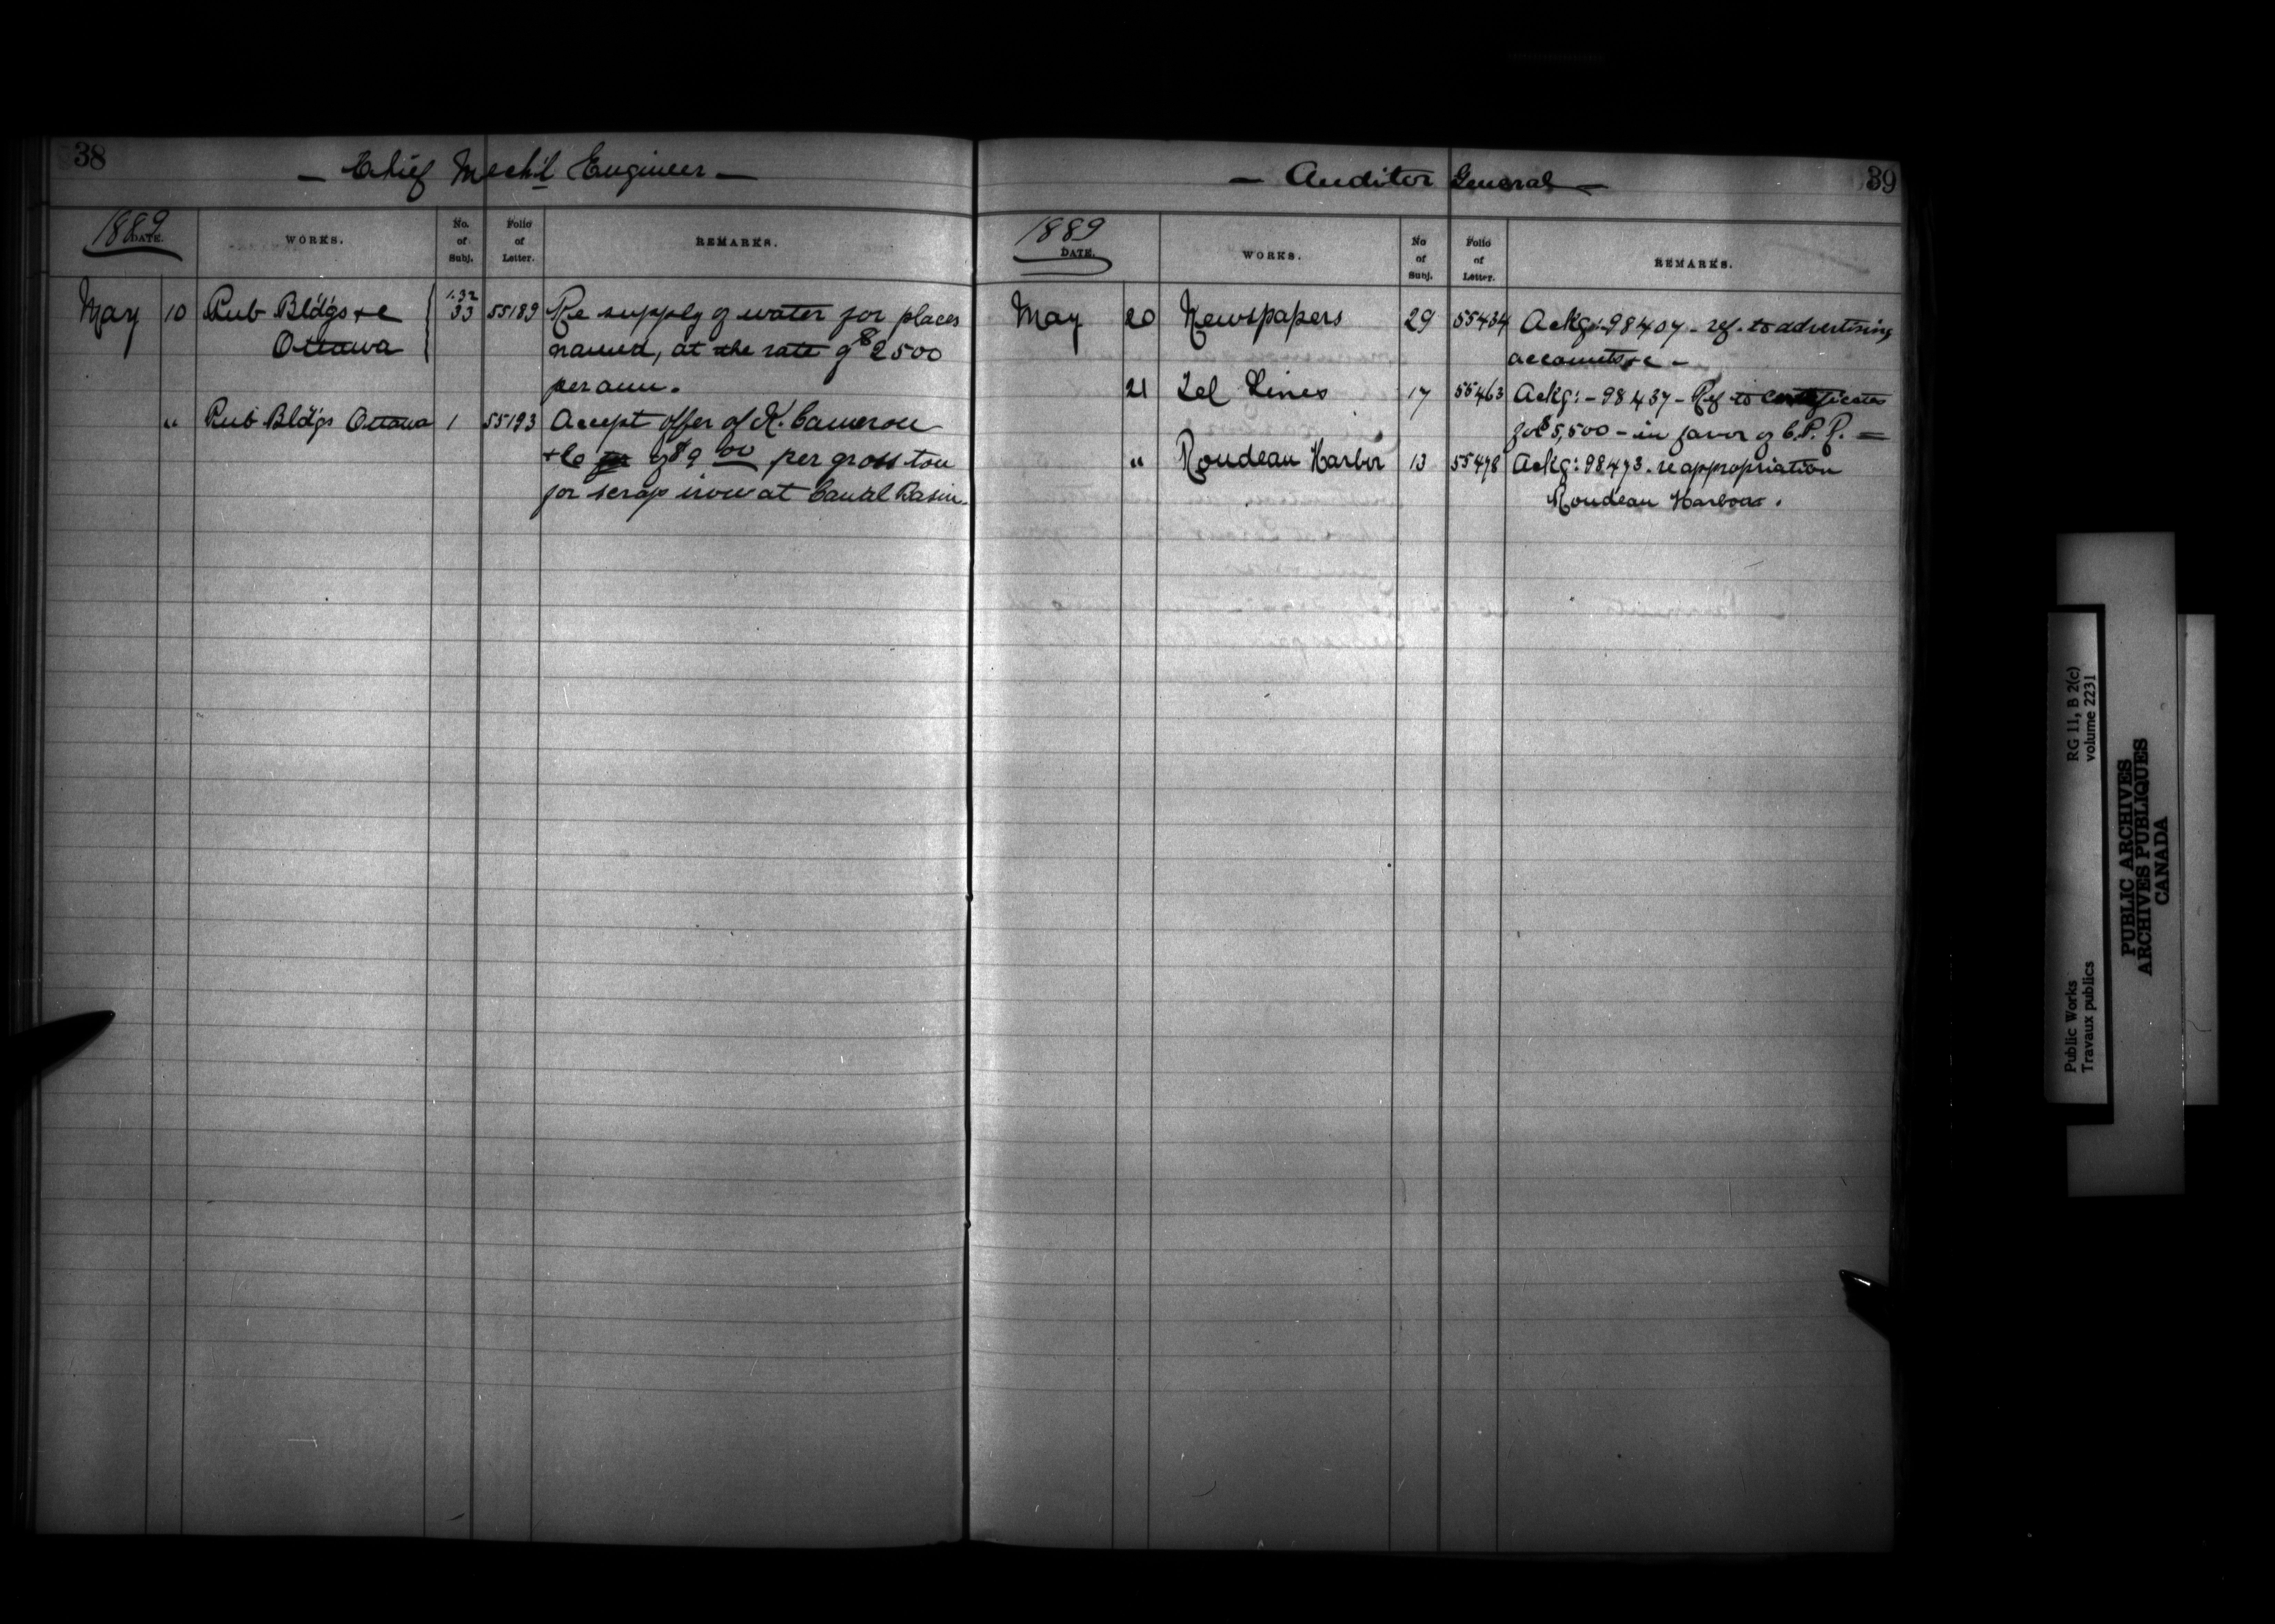 38
— Chief Mech'l Engineer —
1889
DATE.
WORKS.
No. of Subj.
Folio of Letter.
REMARKS.
May 10 Pub Bld'gs &c 1.32 33 55189 Re supply of water for places
Ottawa named, at the rate of $2500
per ann.
" Pub Bld'gs Ottawa 1 55193 Accept offer of K. Cameron
& Co of $9 00 per gross ton
for scrap iron at Canal Basin.
39
— Auditor General —
1889
DATE.
WORKS.
No of Subj.
Folio of Letter.
REMARKS.
May 20 Newspapers 29 55434 Ackg: 98404 - ref. to advertising
accounts &c —
21 Tel Lines 17 55463 Ackg: - 98437 - Ref to certificates
for $5,500 - in favor of C.P.R. =
" Rondeau Harbor 13 55478 Ackg: 98473. re appropriation
Rondeau Harbour.
Public Works RG 11, B 2(c)
Travaux publics volume 2231
PUBLIC ARCHIVES
ARCHIVES PUBLIQUES
CANADA